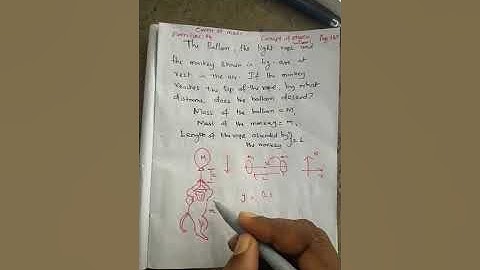 Center of mass
Exercise
Concept of physics Pg. 160
The Balloon, the light rope and
the monkey shown in fig. are at
rest in the air. If the monkey
reaches the top of the rope, by what
distance does the balloon descend?
Mass of the balloon = M,
Mass of the monkey = m,
Length of the rope ascended by
the monkey = L
M
L
m
y =